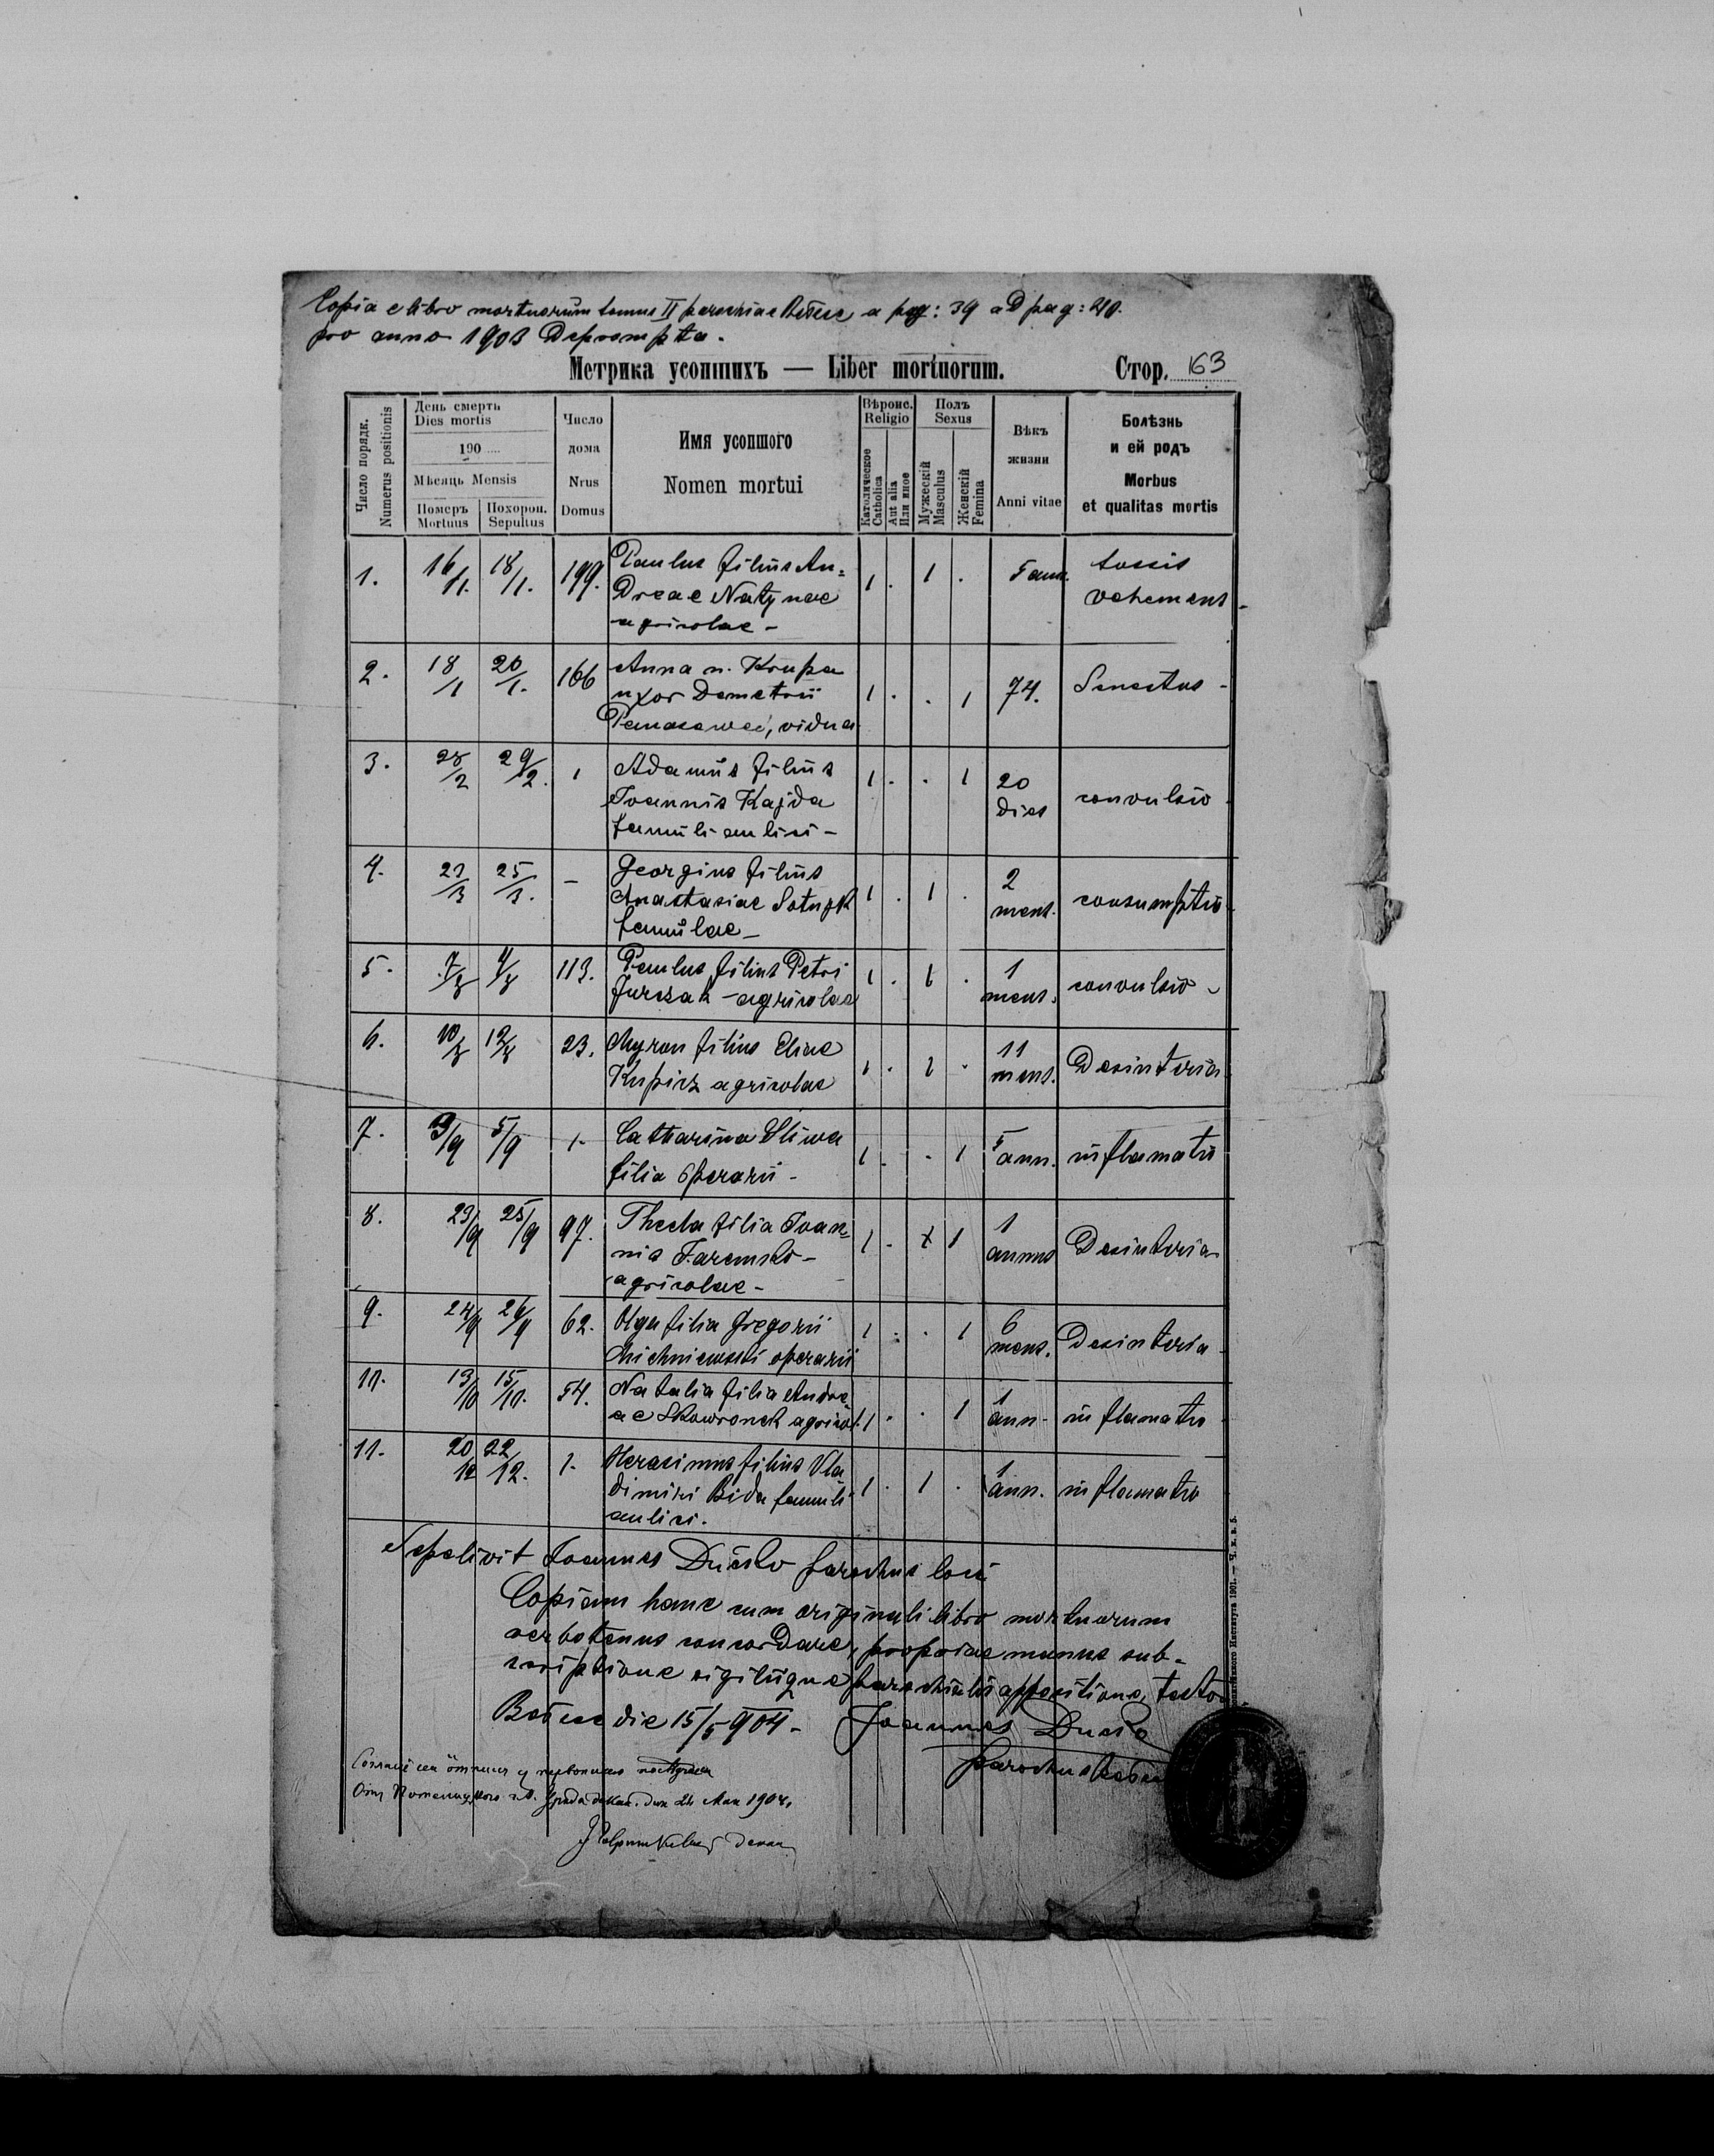 Copia e libro mortuorum tomus II parochiae a pag: 39 ad pag: 40.
pro anno 1903 Deprompta.
Метрика усопшихъ — Liber mortuorum. Стор. 163
Число порядк. Numerus positionis
День смерть Dies mortis
190 ....
Мѣсяць Mensis
Померъ Mortuus
Похорон. Sepultus
Число дома Nrus Domus
Имя усопшого
Nomen mortui
Вѣроис. Religio
Католическое Catholica
Aut alia Или иное
Полъ Sexus
Мужескій Masculus
Женскій Femina
Вѣкъ жизни Anni vitae
Болѣзнь и ей родъ
Morbus et qualitas mortis
1. 16/1. 18/1. 199. Paulus filius An= 1 . 1 . 5 ann. tussis
dreae Natynae vehemens -
agricolae -
2. 18/1 20/1. 166 Anna n. Krupa 1 . . 1 74. Senectus -
uxor Demetrii
vidua
3. 28/2 29/2. 1 Adamus filius 1 . . 1 20
Joannis Kajda dies convulsio
famuli aulici -
4. 23/3 25/3. - Georgius filius 1 . 1 . 2
Anastasiae mens. consumptio
famulae -
5. 7/8 9/8 113. Paulus filius Petri 1 . 1 . 1
Jurczak - agricolae mens. convulsio -
6. 10/8 12/8 23. Myron filius Eliae 1 . 1 . 11
Kupicz agricolae mens. Desinteria
7. 3/9 5/9 1. Catharina Sliwa 1 . . 1 5 ann. inflamatio
filia operarii -
8. 23/9 25/9 97. Thecla filia Joan= 1 . x 1 1
nis Jaremko - annus Desinteria
agricolae -
9. 24/9 26/9 62. Olga filia Gregorii 1 . . 1 6
Michniewski operarii mens. Desinteria
10. 13/10 15/10. 54. Natalia filia Andre= 1 . . 1 1
ae Skowronek agricol. ann. inflamatio
11. 20/12 22/12. 1. Herasimus filius Vla 1 . 1 . 1
dimiri Bida famuli ann. inflamatio
aulici.
Sepelivit Joannes parochus loci
Copiam hanc cum originali libro mortuorum
verbotenus concordare, propriae manus sub=
scriptione sigilique parochialis appositione, testor
die 15/5 904. Joannes
parochus
1904.